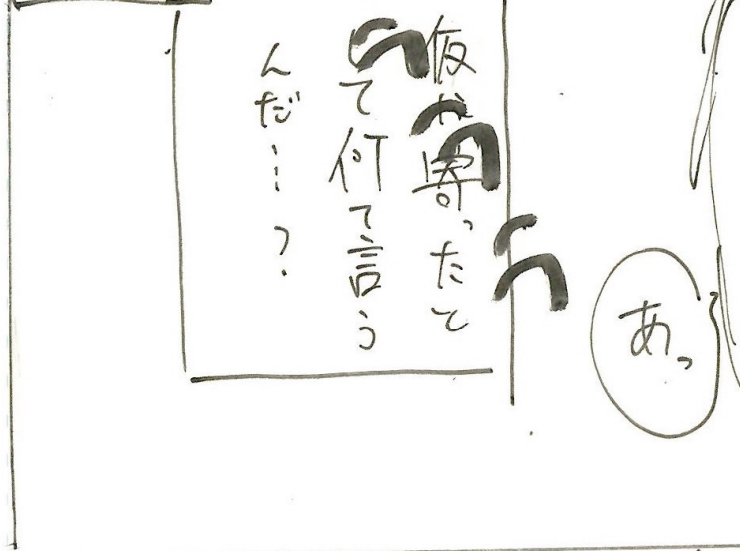 あっ
仮に寄ったと
して何て言う
んだ…?